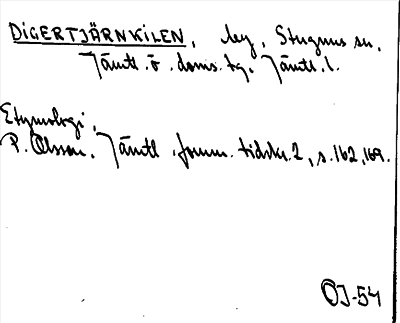 DIGERTJÄRNKILEN, läg, Stuguns sn,
Jämtl. ö. doms. tg. Jämtl. l.
Etymologi,
P. Olsson. Jämtl. fornm. tidskr. 2, s. 162, 169.
ÖJ-54